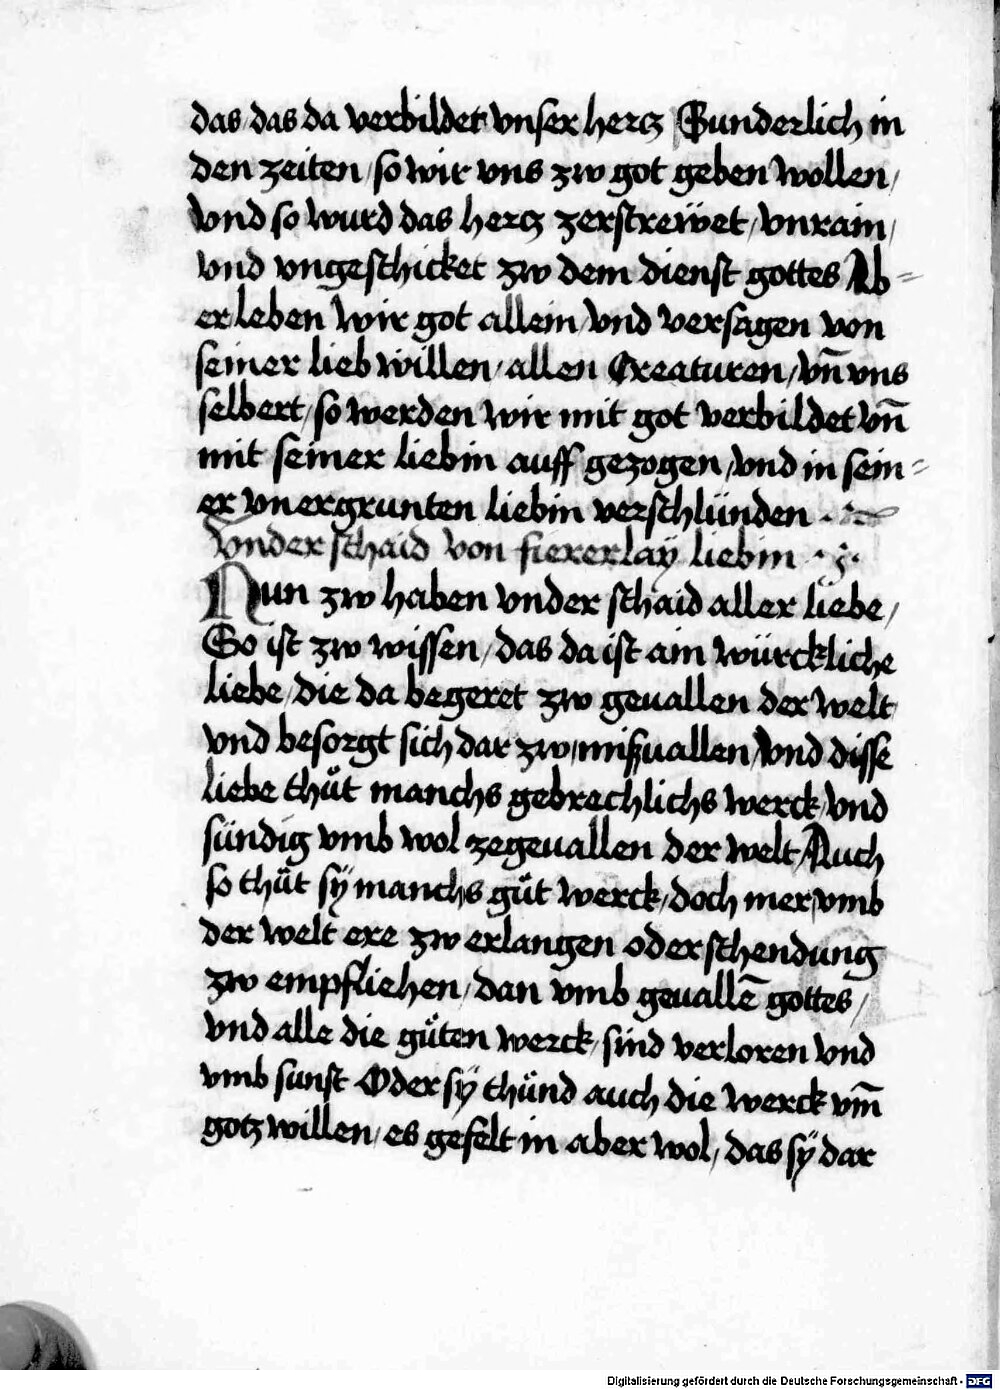 das das da verbildet vnser hercz Sunderlich in
den zeiten / so wir vns zw got geben wollen /
vnd so wurd das hercz zerstreẅet / vnrain /
vnd vngeschicket zw dem dienst gottes Ab=
er leben wir got allein / vnd versagen von
seiner lieb willen / allen Creaturen / vn̄ vns
selbert / so werden wir mit got verbildet vn̄
mit seiner liebin auff gezogen / vnd in sein=
er vnergrunten liebin verschlünden .
Vnderschaid von fiererlaÿ liebin · z̄·
Nun zw haben vnderschaid aller liebe /
So ist zw wissen / das da ist ain würckliche
liebe / die da begeret zw geuallen der welt
vnd besorgt sich dar zw / mißuallen / vnd disse
liebe thu̎t manchs gebrechlichs werck / vnd
sündig vmb wol zegeuallen der welt / Auch
so thu̎t sÿ manchs gu̎t werck / doch mer / vmb
der welt ere zw erlangen oder schendung
zw empfliehen / dan vmb geuallē gottes /
vnd alle die gu̎ten werck / sind verloren vnd
vmb sunst Oder sÿ thu̎nd auch die werck vm̄
gotz willen / es gefelt in aber wol / das sÿ dar
Digitalisierung gefördert durch die Deutsche Forschungsgemeinschaft - DFG